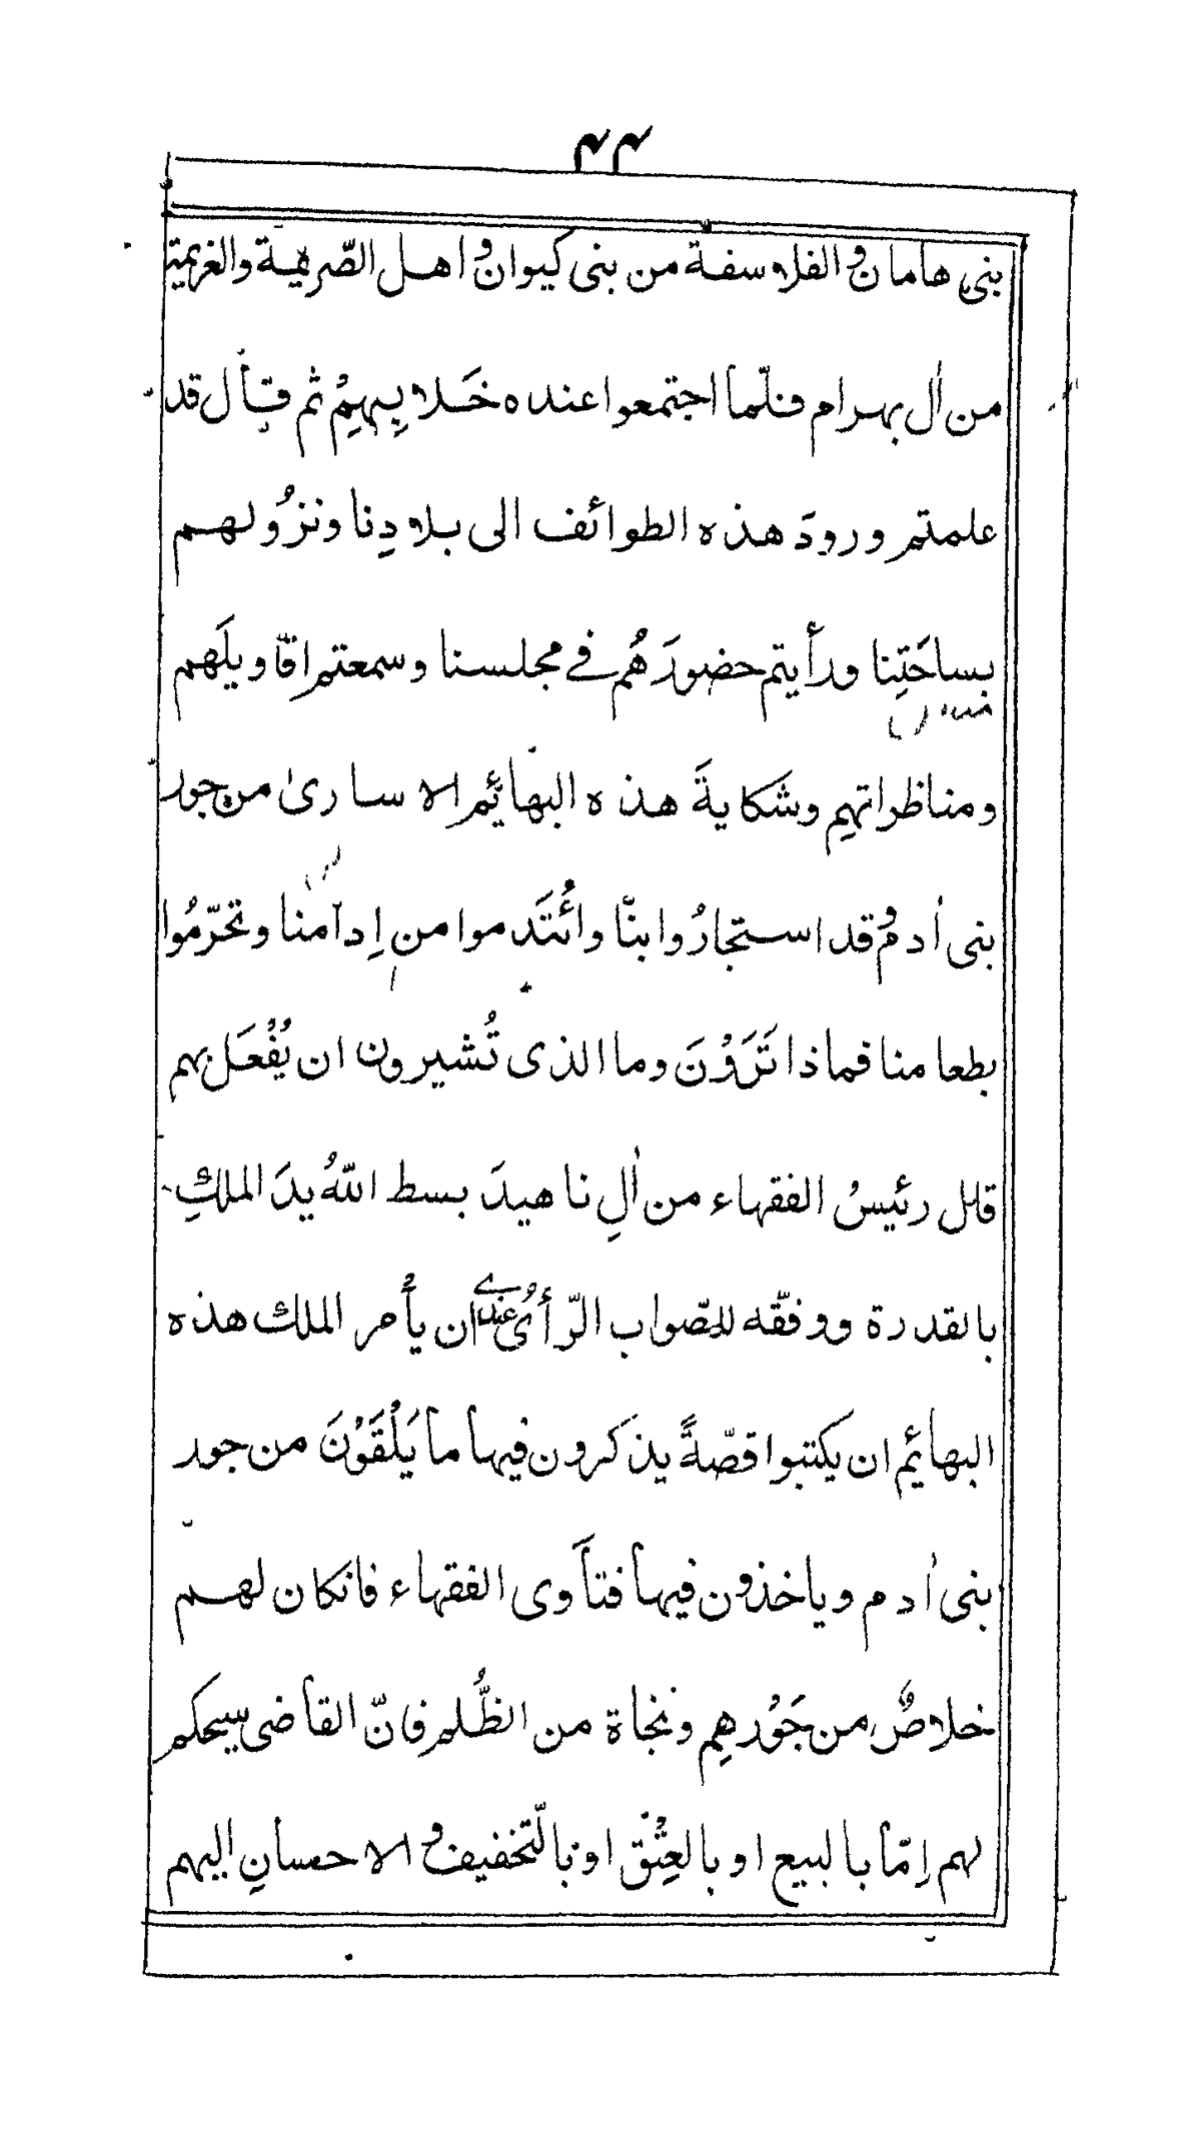 ٤٤
بنى هامان و الفلاسفة من بنى كيوان و اهل الصّريمة والعزيمة
من اٰل بهرام فلمّا اجتمعوا عنده خَلا بِهِمْ ثم قال قد
علمتم ورودَ هذه الطوائف الى بلادِنا ونزُولهم
بساحَتِنا ورأيتم حضورَهُم فى مجلسنا وسمعتم اقاويلَهم
ومناظراتهِم وشَكايةَ هذه البهائِم الاسارىٰ من جور
بنى اٰدم وُقد استجارُوا بنّا وائُتَدموا من اِدامنا وتحرّمُوا
بطعامنا فماذا تَرَوْنَ وما الذى تُشيرون ان يُفْعَل بهم
قال رئيسُ الفقهاء من اٰلِ ناهيدَ بسط اللّٰهُ يدَ الملكِ
بالقدرة ووفقّه للصّواب الرّأىُ عندى ان يأمر الملك هذه
البهائم ان يكتبوا قصّةً يذكرون فيها ما يَلْقَوْنَ من جور
بنى اٰدم وياخذون فيها فتاَوى الفقهاء فانكان لهم
خلاصٌ من جَوْرهِم ونجاة من الظُّلم فانّ القاضى سيحكم
لهم اِمّا بالبيع او بالعِتْق او بالتّخفيف و الاحسانِ اليهم